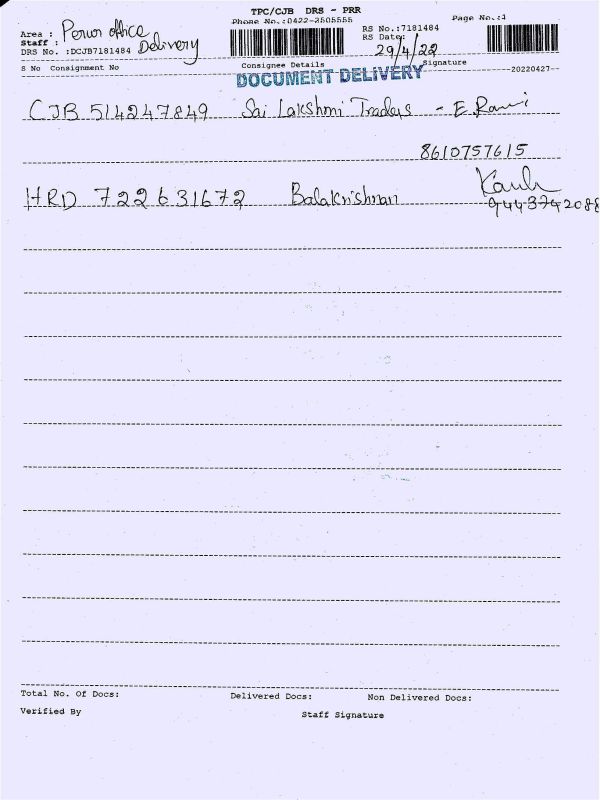 TPC/CJB DRS - PRR
Phone No.:0422-2505555 Page No.:1
Area : Perur office
Staff : Delivery
DRS No. :DCJB7181484
RS No.:7181484
RS Date: 29/4/22
S No Consignment No Consignee Details Signature
DOCUMENT DELIVERY
--20220427--
CJB 514247849 Sai Lakshmi Traders - E. Ravi
8610757615
HRD 722631672 Balakrishnan
9443742088
Total No. Of Docs: Delivered Docs: Non Delivered Docs:
Verified By Staff Signature